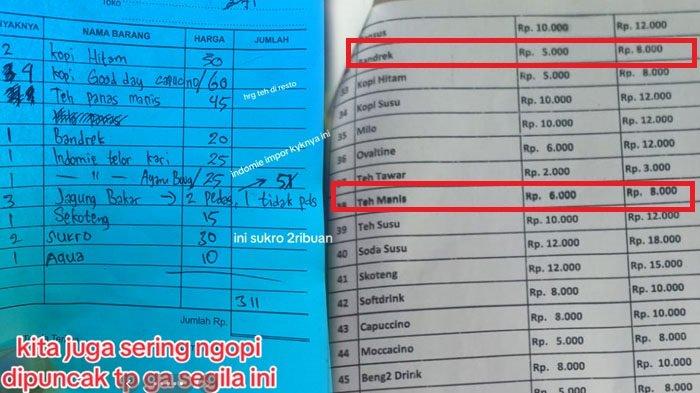 Toko
NYAKNYA NAMA BARANG HARGA JUMLAH
2 kopi Hitam 50
4 kopi Good day capucino/60
Teh panas manis 45
hrg teh di resto
1 Bandrek 20
1 Indomie telor kari 25
indomie impor kyknya ini
1 — " — Ayam Bawang/25 → 5X
3 Jagung Bakar → 2 pedas, 1 tidak pds
1 Sekoteng 15
2 Sukro 30
ini sukro 2ribuan
1 Aqua 10
311
Jumlah Rp.
kita juga sering ngopi
dipuncak tp ga segila ini
Rp. 10.000 Rp. 12.000
Bandrek Rp. 5.000 Rp. 8.000
33 Kopi Hitam Rp. 5.000 Rp. 8.000
34 Kopi Susu Rp. 10.000 Rp. 12.000
35 Milo Rp. 10.000 Rp. 12.000
36 Ovaltine Rp. 6.000 Rp. 12.000
Teh Tawar Rp. 2.000 Rp. 3.000
38 Teh Manis Rp. 6.000 Rp. 8.000
39 Teh Susu Rp. 10.000 Rp. 12.000
40 Soda Susu Rp. 12.000 Rp. 18.000
41 Skoteng Rp. 12.000 Rp. 15.000
42 Softdrink Rp. 8.000 Rp. 10.000
43 Capuccino Rp. 8.000 Rp. 12.000
44 Moccacino Rp. 8.000 Rp. 10.000
45 Beng2 Drink Rp. 8.000 Rp. 10.000
Rp. 5.000 Rp. 8.000